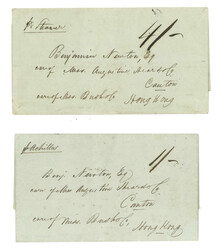 pr Steamer
4/-
Benjamin Newton, Esq
care of Mess. Augustine Heard & Co
Canton
care of Mess. Bush & Co
Hong Kong
p Achilles
1/-
Benj. Newton, Esq
care of Mess Augustine Heard & Co
Canton
care of Mess. Bush & Co.
Hong Kong